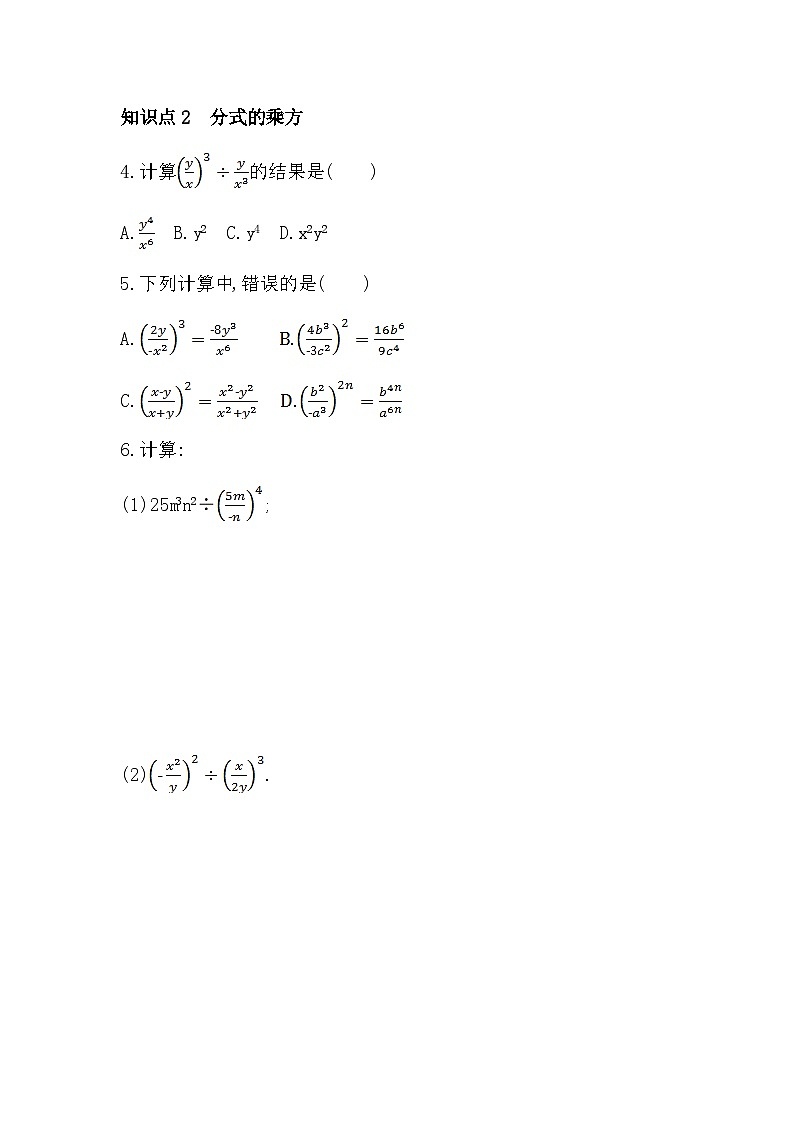 知识点2 分式的乘方
4.计算(y/x)³÷y/x³的结果是(  )
A.y⁴/x⁶ B.y² C.y⁴ D.x²y²
5.下列计算中,错误的是(  )
A.(2y/-x²)³=-8y³/x⁶ B.(4b³/-3c²)²=16b⁶/9c⁴
C.(x-y/x+y)²=x²-y²/x²+y² D.(b²/-a³)²ⁿ=b⁴ⁿ/a⁶ⁿ
6.计算:
(1)25m³n²÷(5m/-n)⁴;
(2)(-x²/y)²÷(x/2y)³.